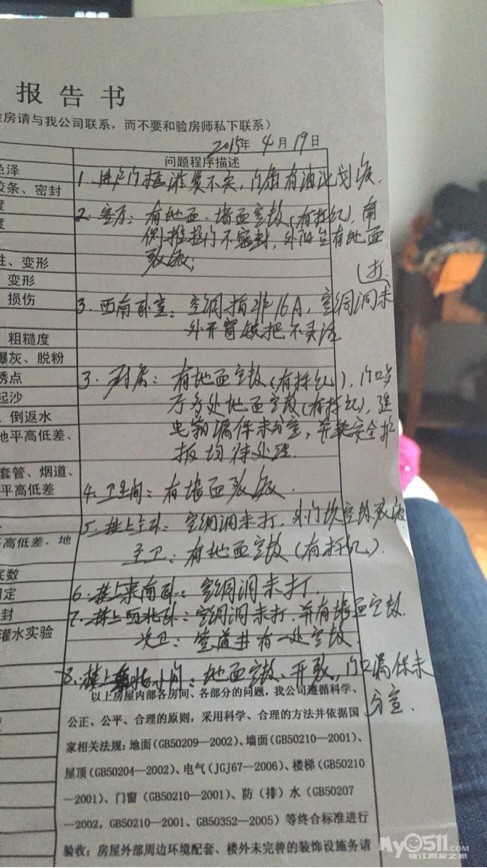 报告书
房请与我公司联系，而不要和验房师私下联系）
2015年4月19日
色泽
问题程序描述
胶条、密封
1. 进户门框
划痕
度
2. 客厅：有地面、墙面空鼓（有标记），南
度
侧推拉门不密封，外阳台有地面
性、变形
裂缝；
变形
损伤
3. 西南卧室：空调插非16A，空调洞未打
外开窗
把不灵活
粗糙度
爆灰、脱粉
透点
3. 厨房：有地面空鼓（有标记），门口
起沙
厅多处地面空鼓（有标记），强
倒返水
电箱漏保未分室，
地平高低差、
板均待处理
套管、烟道、
平高低差
4. 卫生间：有墙面裂缝
5. 楼上主卧：空调洞未打
平高低差、地
主卫：有地面空鼓（有标记）.
底数
6. 楼上东南卧：空调洞未打.
固定
7. 楼上西北卧：空调洞未打，并有墙面空鼓
封
次卫：管道井有一处空鼓
灌水实验
8. 楼上
间：地面空鼓、开裂，
漏保未
分室.
以上房屋内部各房间、各部分的问题，我公司遵循科学、
公正、公平、合理的原则，采用科学、合理的方法并依据国
家相关法规：地面（GB50209—2002）、墙面（GB50210—2001）、
屋顶（GB50204—2002）、电气（JGJ67—2006）、楼梯（GB50210
—2001）、门窗（GB50210—2001）、防（排）水（GB50207
—2002，GB50210—2001、GB50352—2005）等终合标准进行
验收；房屋外部周边环境配套、楼外未完善的装饰设施务请
My0511.com
镇江网友之家